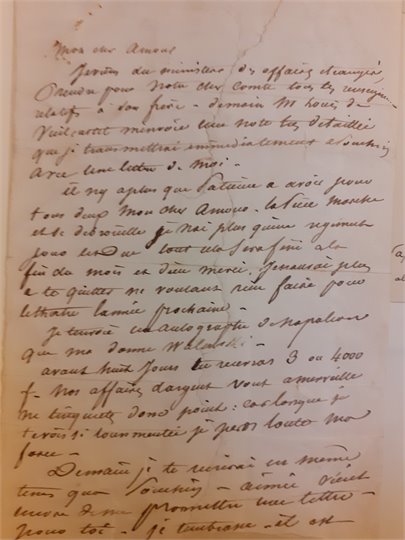 Mon cher Amour
Je viens du ministère des affaires étrangères
prendre pour notre cher comte tous les renseign-
relatifs a son frère - demain Mr Louis de
Vieilcastel m'enverra une note très détaillée
que je transmettrai immédiatement a
avec une lettre de moi -
il n'y a plus que patience a avoir pour
tous deux mon cher Amour - la pièce marche
et se débrouille je n'ai plus qu'une
pour tout cela sera fini a la
fin du mois et dieu merci. Je n'aurai plus
a te quitter ne voulant rien faire pour
l'année prochaine -
Je t'envoie un autographe de Napoléon
que m'a donné Walewski -
avant huit jours tu recevras 3 ou 4000
f - nos affaires d'argent vont a merveille
ne t'inquiète donc point : car lorsque je
te vois si tourmentée je perds toute ma
force -
Demain je t'écrirai en même
temps que - aimée vient
encore de me promettre une lettre -
pour toi - je t'embrasse - il est